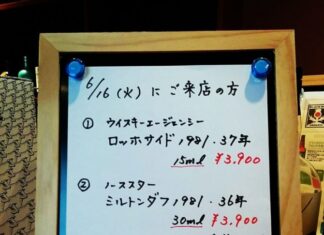 6/16（火）にご来店の方
① ウイスキーエージェンシー
ロッホサイド 1981. 37年
15ml ¥3,900
② ノーススター
ミルトンダフ 1981. 36年
30ml ¥3,900